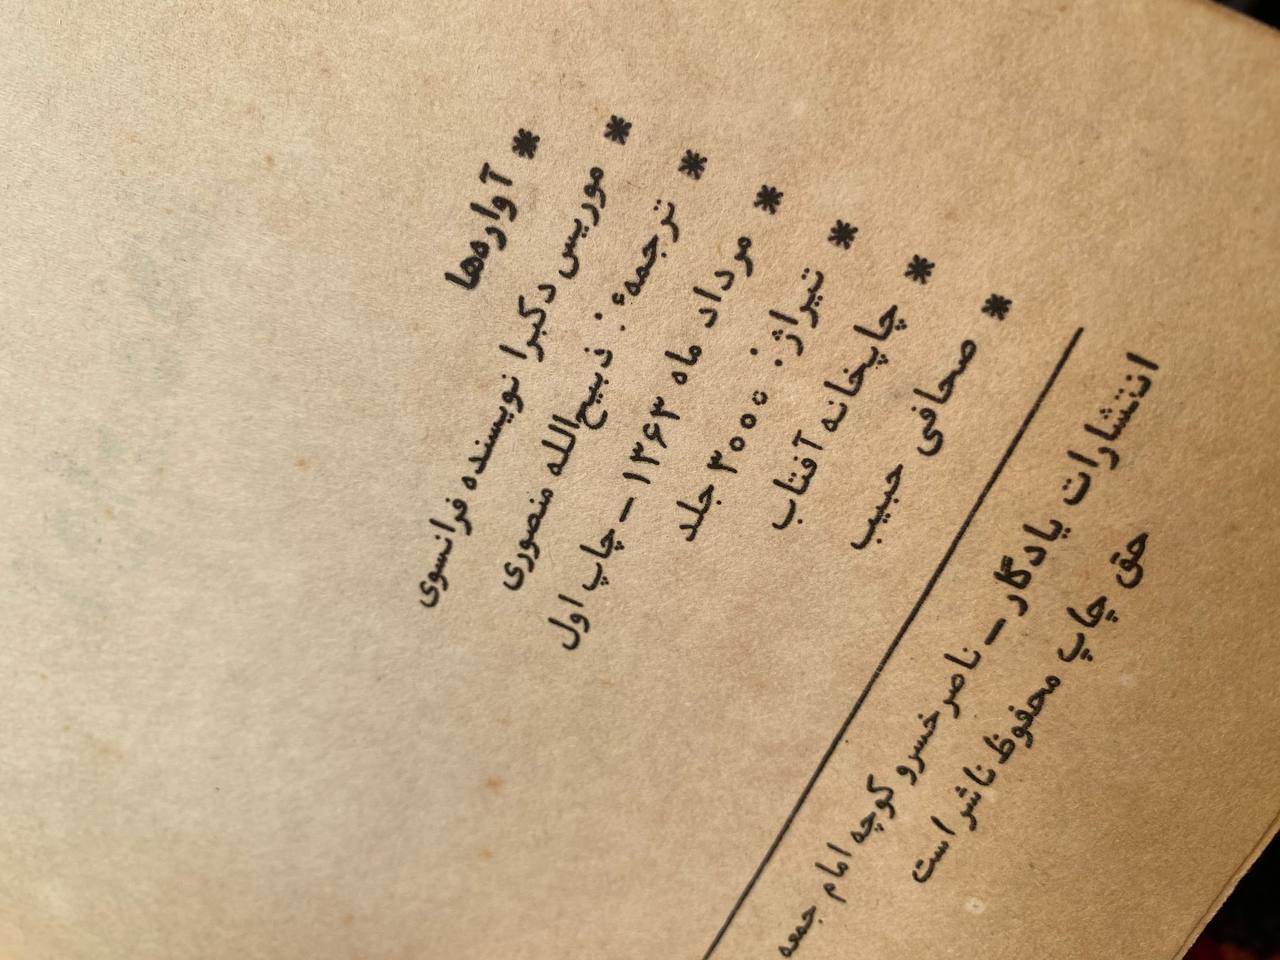 * آواره‌ها
* موریس دکبرا نویسنده فرانسوی
* ترجمهٔ : ذبیح‌الله منصوری
* مرداد ماه ۱۳۶۳ – چاپ اول
* تیراژ : ۳۰۰۰ جلد
* چاپخانه آفتاب
* صحافی حبیب
انتشارات یادگار – ناصر خسرو کوچه امام جمعه
حق چاپ محفوظ ناشر است